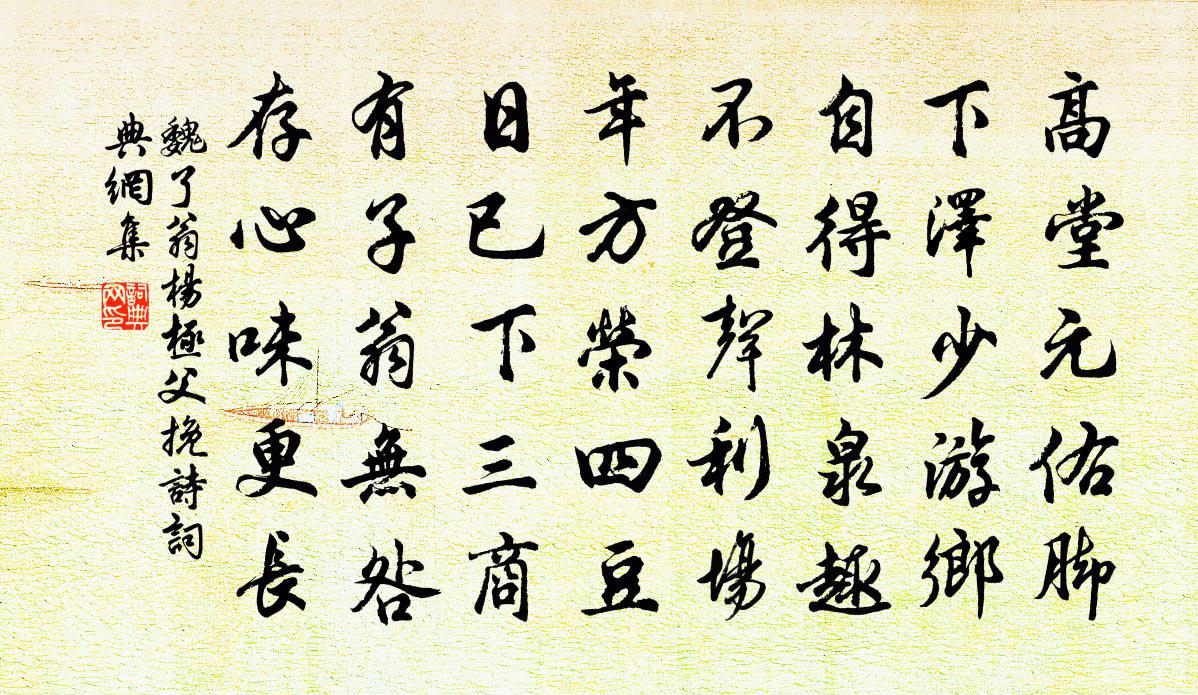 高堂元佑脚
下澤少游鄉
自得林泉趣
不登聲利場
年方四豆
日已下三商
有子翁無咎
存心味更長
魏了翁楊極父挽詩詞
典網集
詞典网印